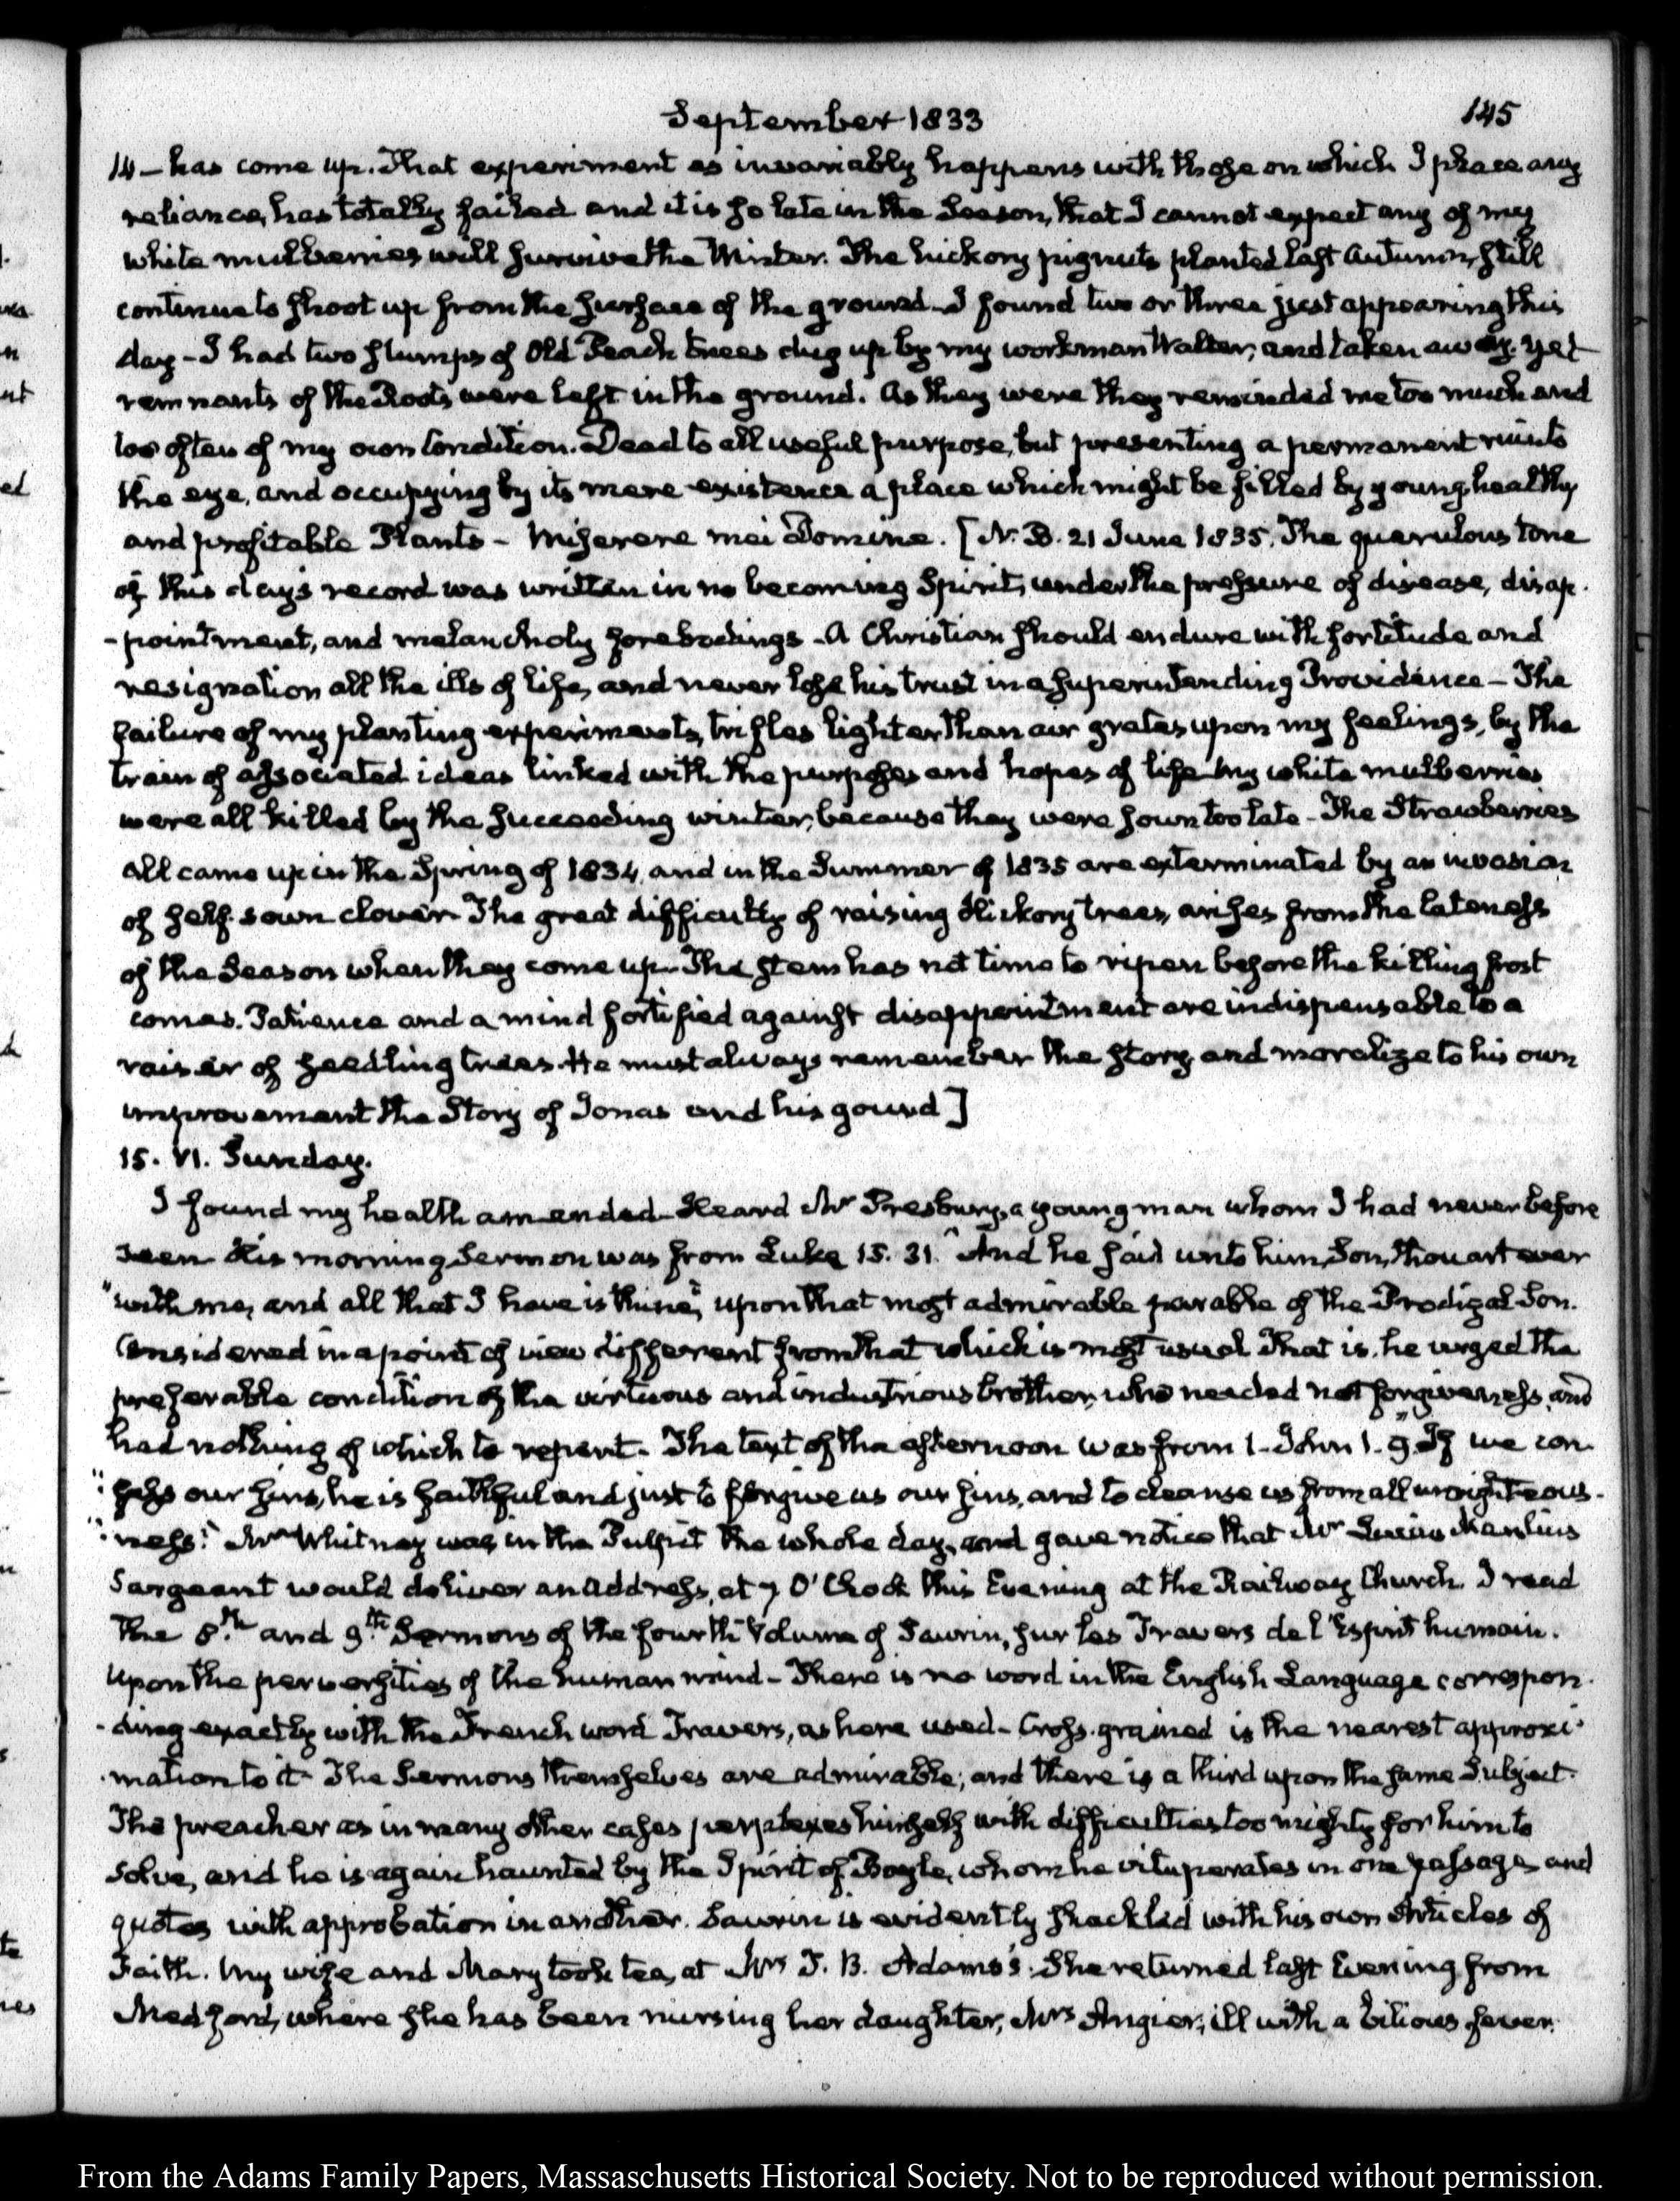 September 1833
145
14 - has come up. That experiment as invariably happens with those on which I place any
reliance, has totally failed and it is so late in the Season, that I cannot expect any of my
white mulberries will survive the Winter. The hickory pignuts planted last Autumn, still
continue to shoot up from the surface of the ground - I found two or three just appearing this
day - I had two stumps of Old Peach trees dug up by my workman Walter, and taken away. Yet
remnants of the Roots were left in the ground. As they were they reminded me too much and
too often of my own Condition. Dead to all useful purpose, but presenting a permanent ruin to
the eye, and occupying by its mere existence a place which might be filled by young, healthy
and profitable Plants - Miserere mei Domine. [N.B. 21 June 1835. The querulous tone
of this day's record was written in no becoming Spirit, under the pressure of disease, disap-
-pointment, and melancholy forebodings - A Christian should endure with fortitude and
resignation all the ills of life, and never lose his trust in a superintending Providence - The
failure of my planting experiments, trifles lighter than air grates upon my feelings, by the
train of associated ideas linked with the purposes and hopes of life. My white mulberries
were all killed by the succeeding winter, because they were sown too late - The Strawberries
all came up in the Spring of 1834, and in the Summer of 1835 are exterminated by an invasion
of self-sown clover. The great difficulty of raising Hickory trees, arises from the lateness
of the Season when they come up. The stem has not time to ripen before the killing frost
comes. Patience and a mind fortified against disappointment are indispensable to a
raiser of seedling trees. He must always remember the story, and moralize to his own
improvement the Story of Jonas and his gourd]
15. VI. Sunday.
I found my health amended - Heard Mr Presbury, a young man whom I had never before
seen His morning Sermon was from Luke 15. 31. "And he said unto him, Son, thou art ever
"with me, and all that I have is thine," upon that most admirable parable of the Prodigal Son.
Considered in a point of view different from that which is most usual That is, he urged the
preferable condition of the virtuous and industrious brother, who needed not forgiveness, and
had nothing of which to repent. The text of the afternoon was from 1. John 1. 9. "If we con-
"fess our sins, he is faithful and just to forgive us our sins, and to cleanse us from all unrighteous-
"ness." Mr Whitney was in the Pulpit the whole day, and gave notice that Mr Lucius Manlius
Sargeant would deliver an Address, at 7 O'Clock this Evening at the Railway Church. I read
the 8th and 9th Sermons of the fourth Volume of Saurin, sur les Travers de l'Esprit humain.
Upon the perversities of the human mind - There is no word in the English Language correspon-
-ding exactly with the French word Travers, as here used - Cross-grained is the nearest approxi-
-mation to it - The Sermons themselves are admirable; and there is a third upon the same Subject.
The preacher as in many other cases perplexes himself with difficulties too mighty for him to
solve, and he is again haunted by the Spirit of Bayle, whom he vituperates in one passage, and
quotes with approbation in another. Saurin is evidently shackled with his own Articles of
Faith. My wife and Mary took tea, at Mrs T. B. Adams's. She returned last Evening from
Medford, where she has been nursing her daughter, Mrs Angier, ill with a bilious fever.
From the Adams Family Papers, Massachusetts Historical Society. Not to be reproduced without permission.